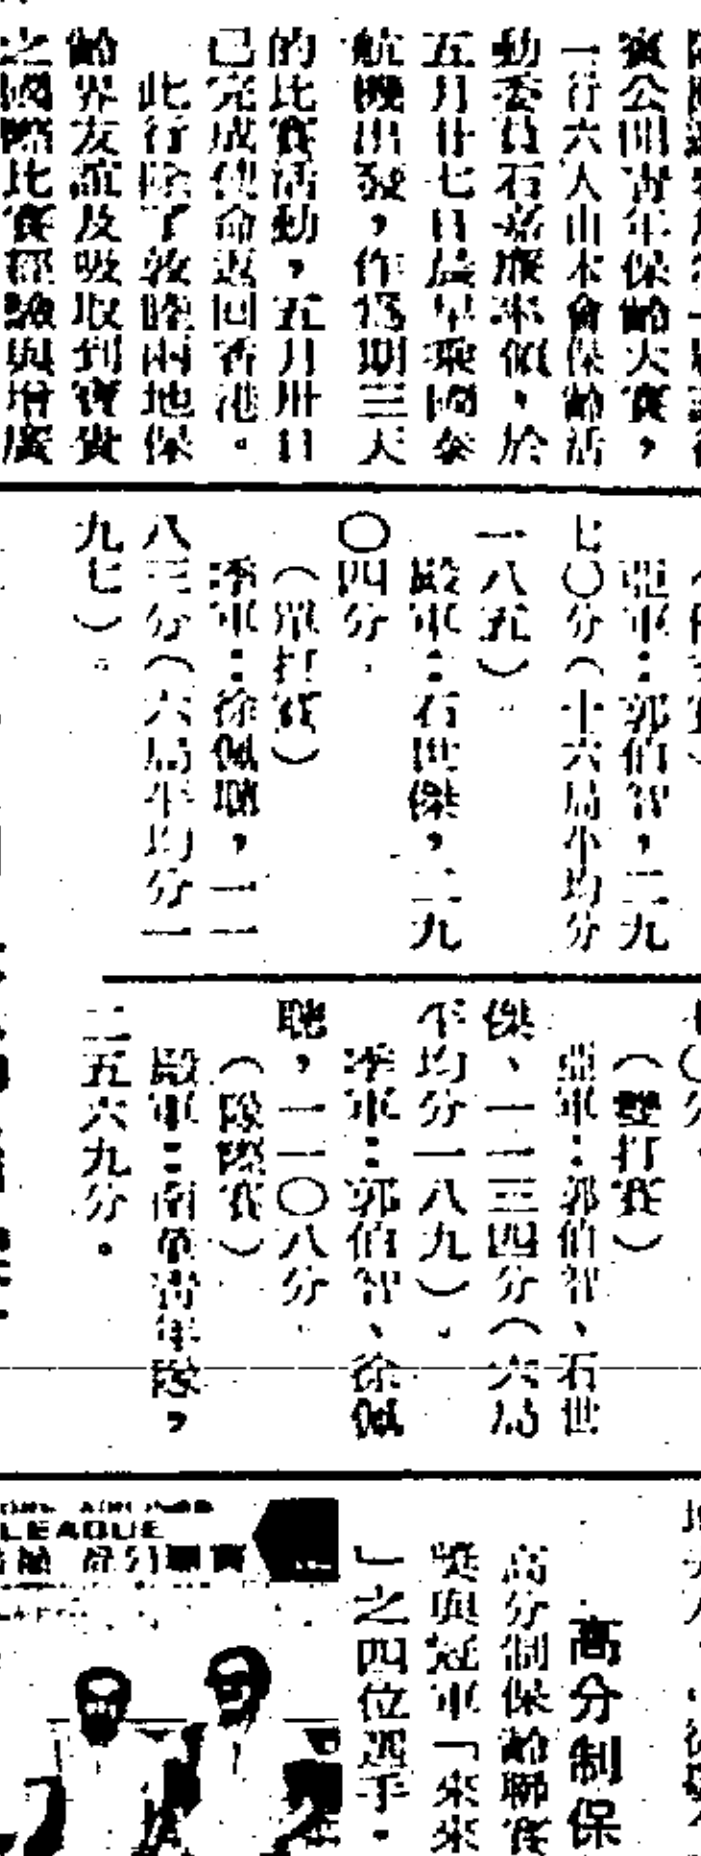 賽公開青年保齡大賽，
一行六人由本會保齡活
動委員石嘉廉率領，於
五月廿七日晨早乘國泰
航機出發，作爲期三天
的比賽活動，五月卅日
已完成使命返回香港。
此行除了敦睦兩地保
齡界友誼及吸取到寶貴
之國際比賽經驗與增廣
亞軍：郭伯智，二九
七〇分（十六局平均分
一八五）。
殿軍：石世傑，二九
〇四分。
（單打賽）
季軍：徐佩聰，一一
八三分（六局平均分一
九七）。
〇分。
（雙打賽）
亞軍：郭伯智、石世
傑、一一三四分（六局
平均分一八九）。
季軍：郭伯智、徐佩
聰，一一〇八分。
（隊際賽）
殿軍：南華青年隊，
二五六九分。
高分制保
高分制保齡聯賽
獎與冠軍「來來
」之四位選手。
LEAGUE